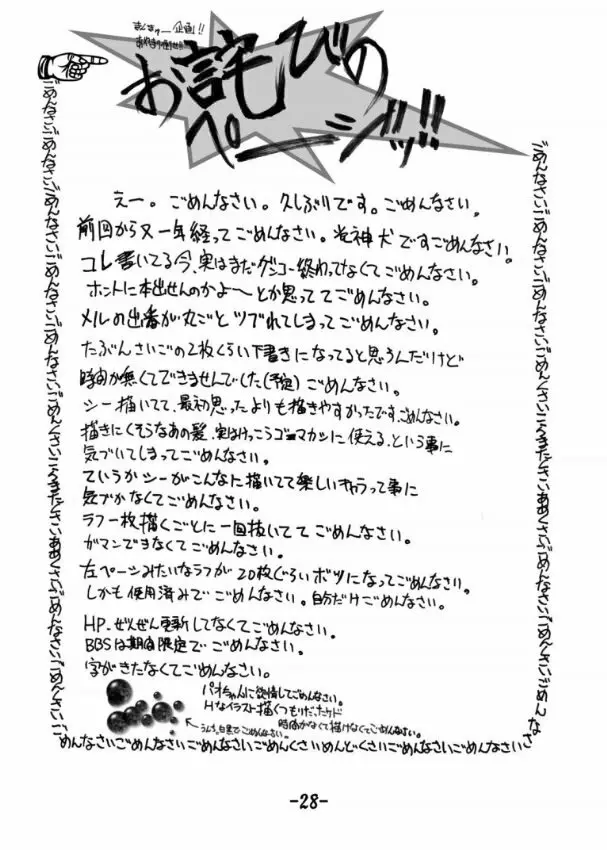 まんきゅー企画!!
お詫びの
ページッ!!
えー。ごめんなさい。久しぶりです。ごめんなさい。
前回から又一年経ってごめんなさい。光神犬ですごめんなさい。
コレ書いてる今、実はまだゲンコー終わってなくてごめんなさい。
ホントに本出せんのかよ〜とか思っててごめんなさい。
メルの出番が丸ごとツブれてしまってごめんなさい。
たぶんさいごの2枚くらい下書きになってると思うんだけど
時間が無くてできませんでした(予定)ごめんなさい。
シー描いてて、最初思ったよりも描きやすかったです、ごめんなさい。
描きにくそうなあの髪、実はけっこうゴマカシに使える、という事に
気づいてしまってごめんなさい。
ていうかシーがこんなに描いてて楽しいキャラって事に
気づかなくてごめんなさい。
ラフ一枚描くごとに一回抜いててごめんなさい。
ガマンできなくてごめんなさい。
左ページみたいなラフが20枚ぐらいボツになってごめんなさい。
しかも使用済みでごめんなさい。自分だけごめんなさい。
HP、ぜんぜん更新してなくてごめんなさい。
BBSは期間限定でごめんなさい。
字がきたなくてごめんなさい。
パオちゃんに欲情してごめんなさい。
Hなイラスト描くつもりだったケド
時間がなくて描けなくてごめんなさい。
ごめんなさい。
めんなさいごめんなさいごめんなさいごめんくさいめんどくさいごめんなさいごめんなさい
-28-